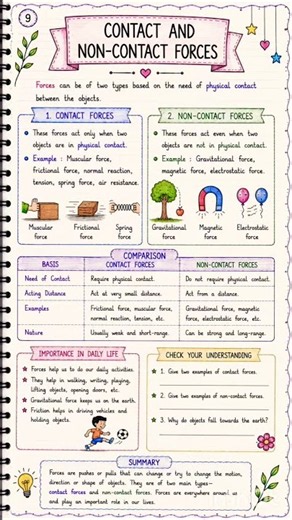 9
CONTACT AND
NON-CONTACT FORCES
Forces can be of two types based on the need of physical contact
between the objects.
1. CONTACT FORCES
These forces act only when two
objects are in physical contact.
Example : Muscular force,
frictional force, normal reaction,
tension, spring force, air resistance.
Muscular
force
Frictional
force
Spring
force
2. NON-CONTACT FORCES
These forces act even when two
objects are not in physical contact.
Example : Gravitational force,
magnetic force, electrostatic force.
Gravitational
force
Magnetic
force
Electrostatic
force
COMPARISON
BASIS CONTACT FORCES NON-CONTACT FORCES
Need of Contact Require physical contact. Do not require physical contact.
Acting Distance Act at very small distance. Act from a distance.
Examples Frictional force, muscular force, Gravitational force, magnetic
normal reaction, tension, etc. force, electrostatic force, etc.
Nature Usually weak and short-range. Can be strong and long-range.
IMPORTANCE IN DAILY LIFE
Forces help us to do our daily activities.
They help in walking, writing, playing,
lifting objects, opening doors, etc.
Gravitational force keeps us on the earth.
Friction helps in driving vehicles and
holding objects.
CHECK YOUR UNDERSTANDING
1. Give two examples of contact forces.
2. Give two examples of non-contact forces.
3. Why do objects fall towards the earth?
SUMMARY
Forces are pushes or pulls that can change or try to change the motion,
direction or shape of objects. They are of two main types-
contact forces and non-contact forces. Forces are everywhere around us
and play an important role in our lives.